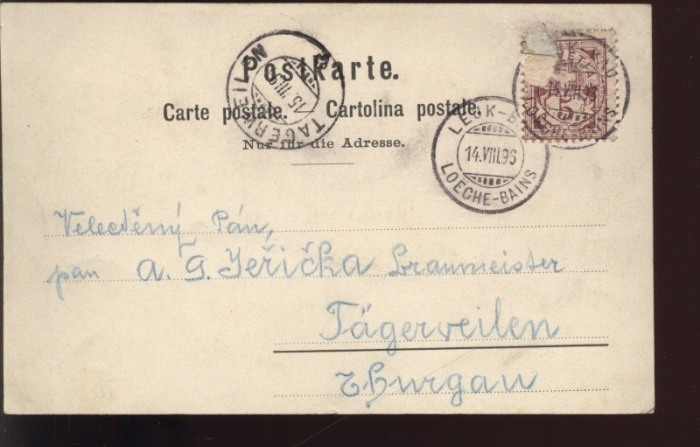 PostKarte.
Carte postale. Cartolina postale.
Nur für die Adresse.
TÄGERWEILEN
15.VIII.96
LEUK-B
14.VIII.96
LOÈCHE-BAINS
Velectěný Pán,
pan A. G. Jeřička Braumeister
Tägerweilen
Thurgau